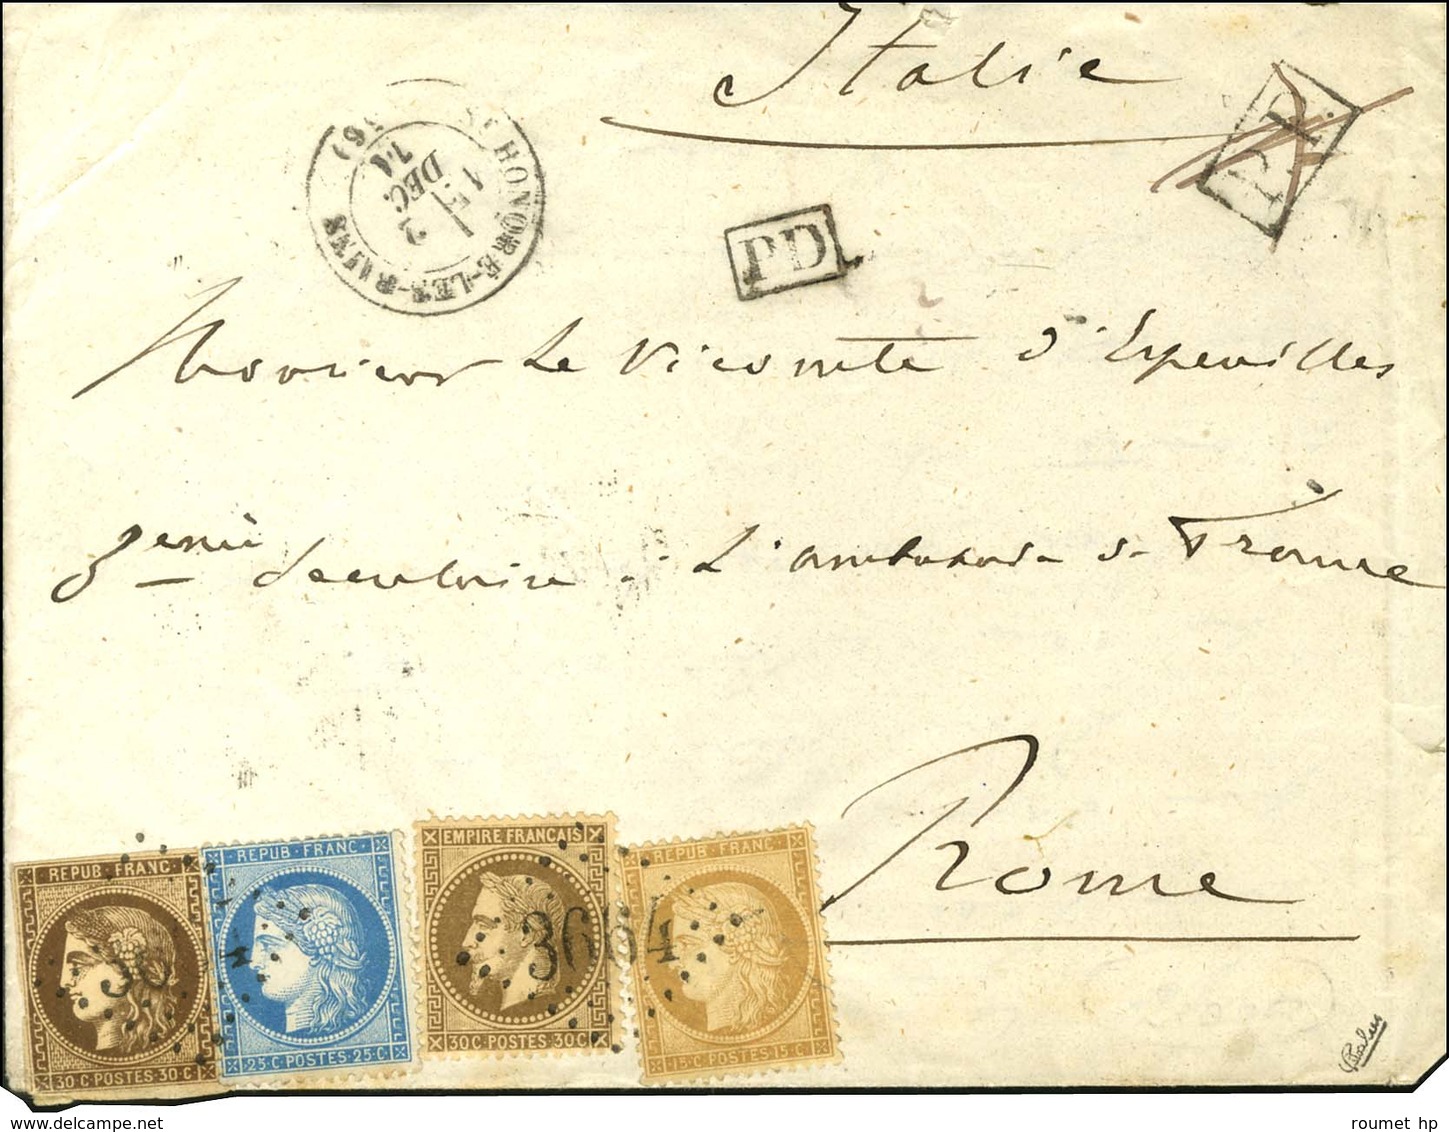 Italie
P.P.
ST HONORÉ-LES-BAINS
1E
2
DEC.
71
PD
Monsieur Le Vicomte d'Espeuilles
3eme Secretaire à L'ambassade de France
Rome
REPUB. FRANC.
30·C·POSTES·30·C
REPUB·FRANC·
25·C·POSTES·25·C
EMPIRE FRANÇAIS
30C·POSTES 30C
3664
REPUB·FRANC·
15·C·POSTES·15·C
www.delcampe.net
roumet hp